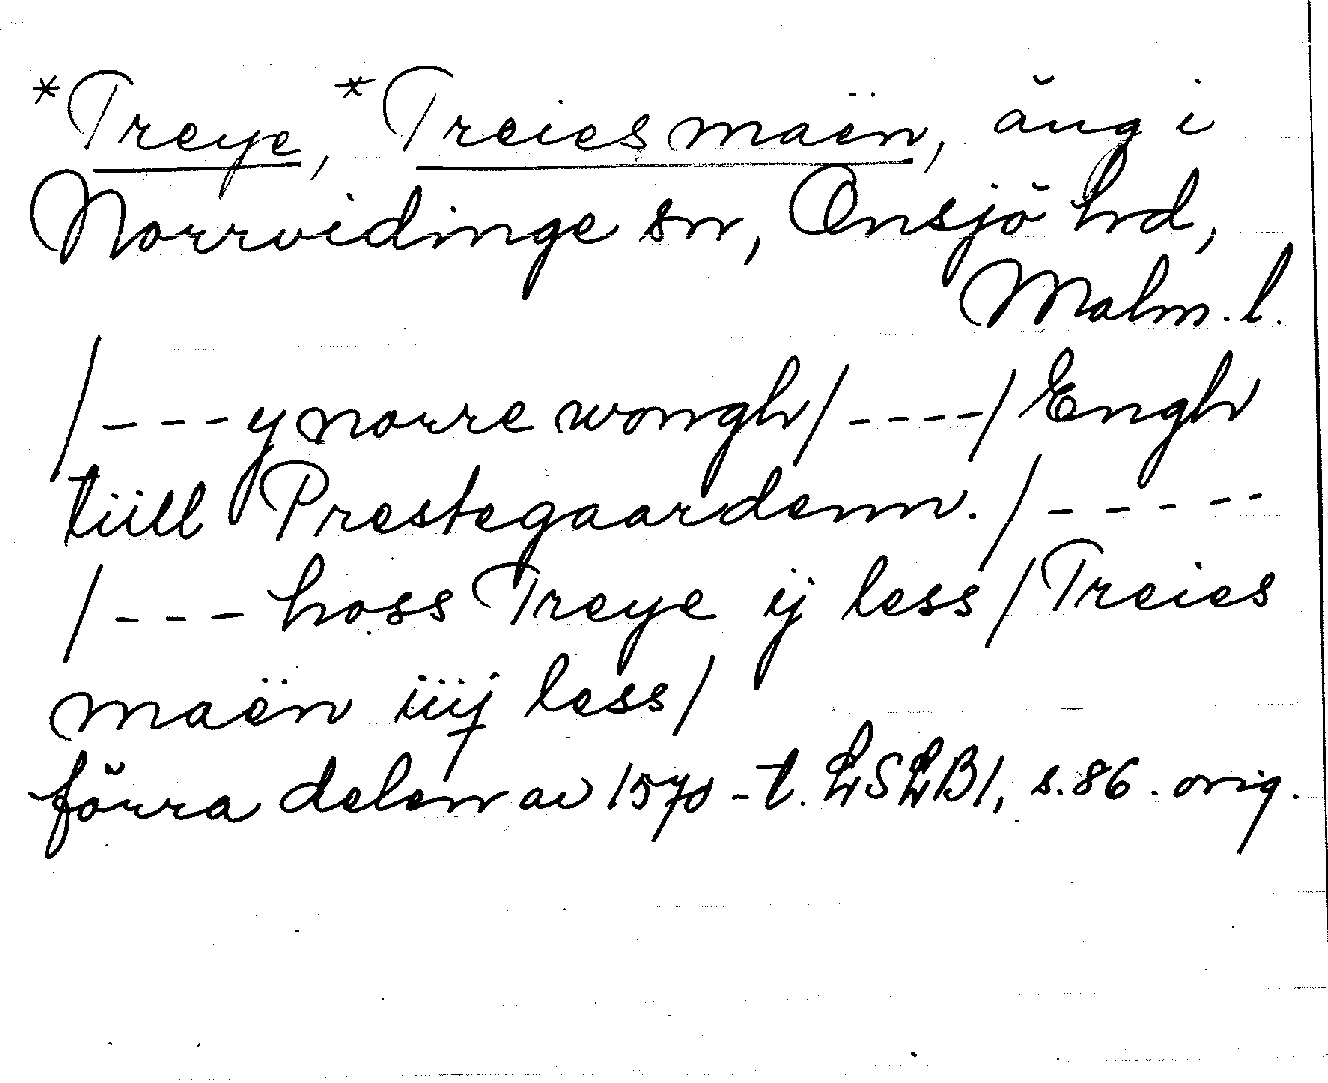 *Treye, *Treies maën, äng i
Norrvidinge sn, Onsjö hd,
Malm. l.
/---y norre wongh/----/Engh
tüll Prestegaardenn./-----
/---hoss Treye ij less/Treies
maën iiij less/
förra delen av 1570-t. LSLB1, s.86. orig.